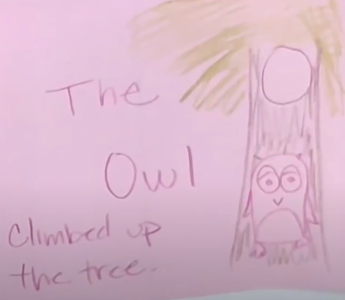 The
Owl
Climbed up
the tree.